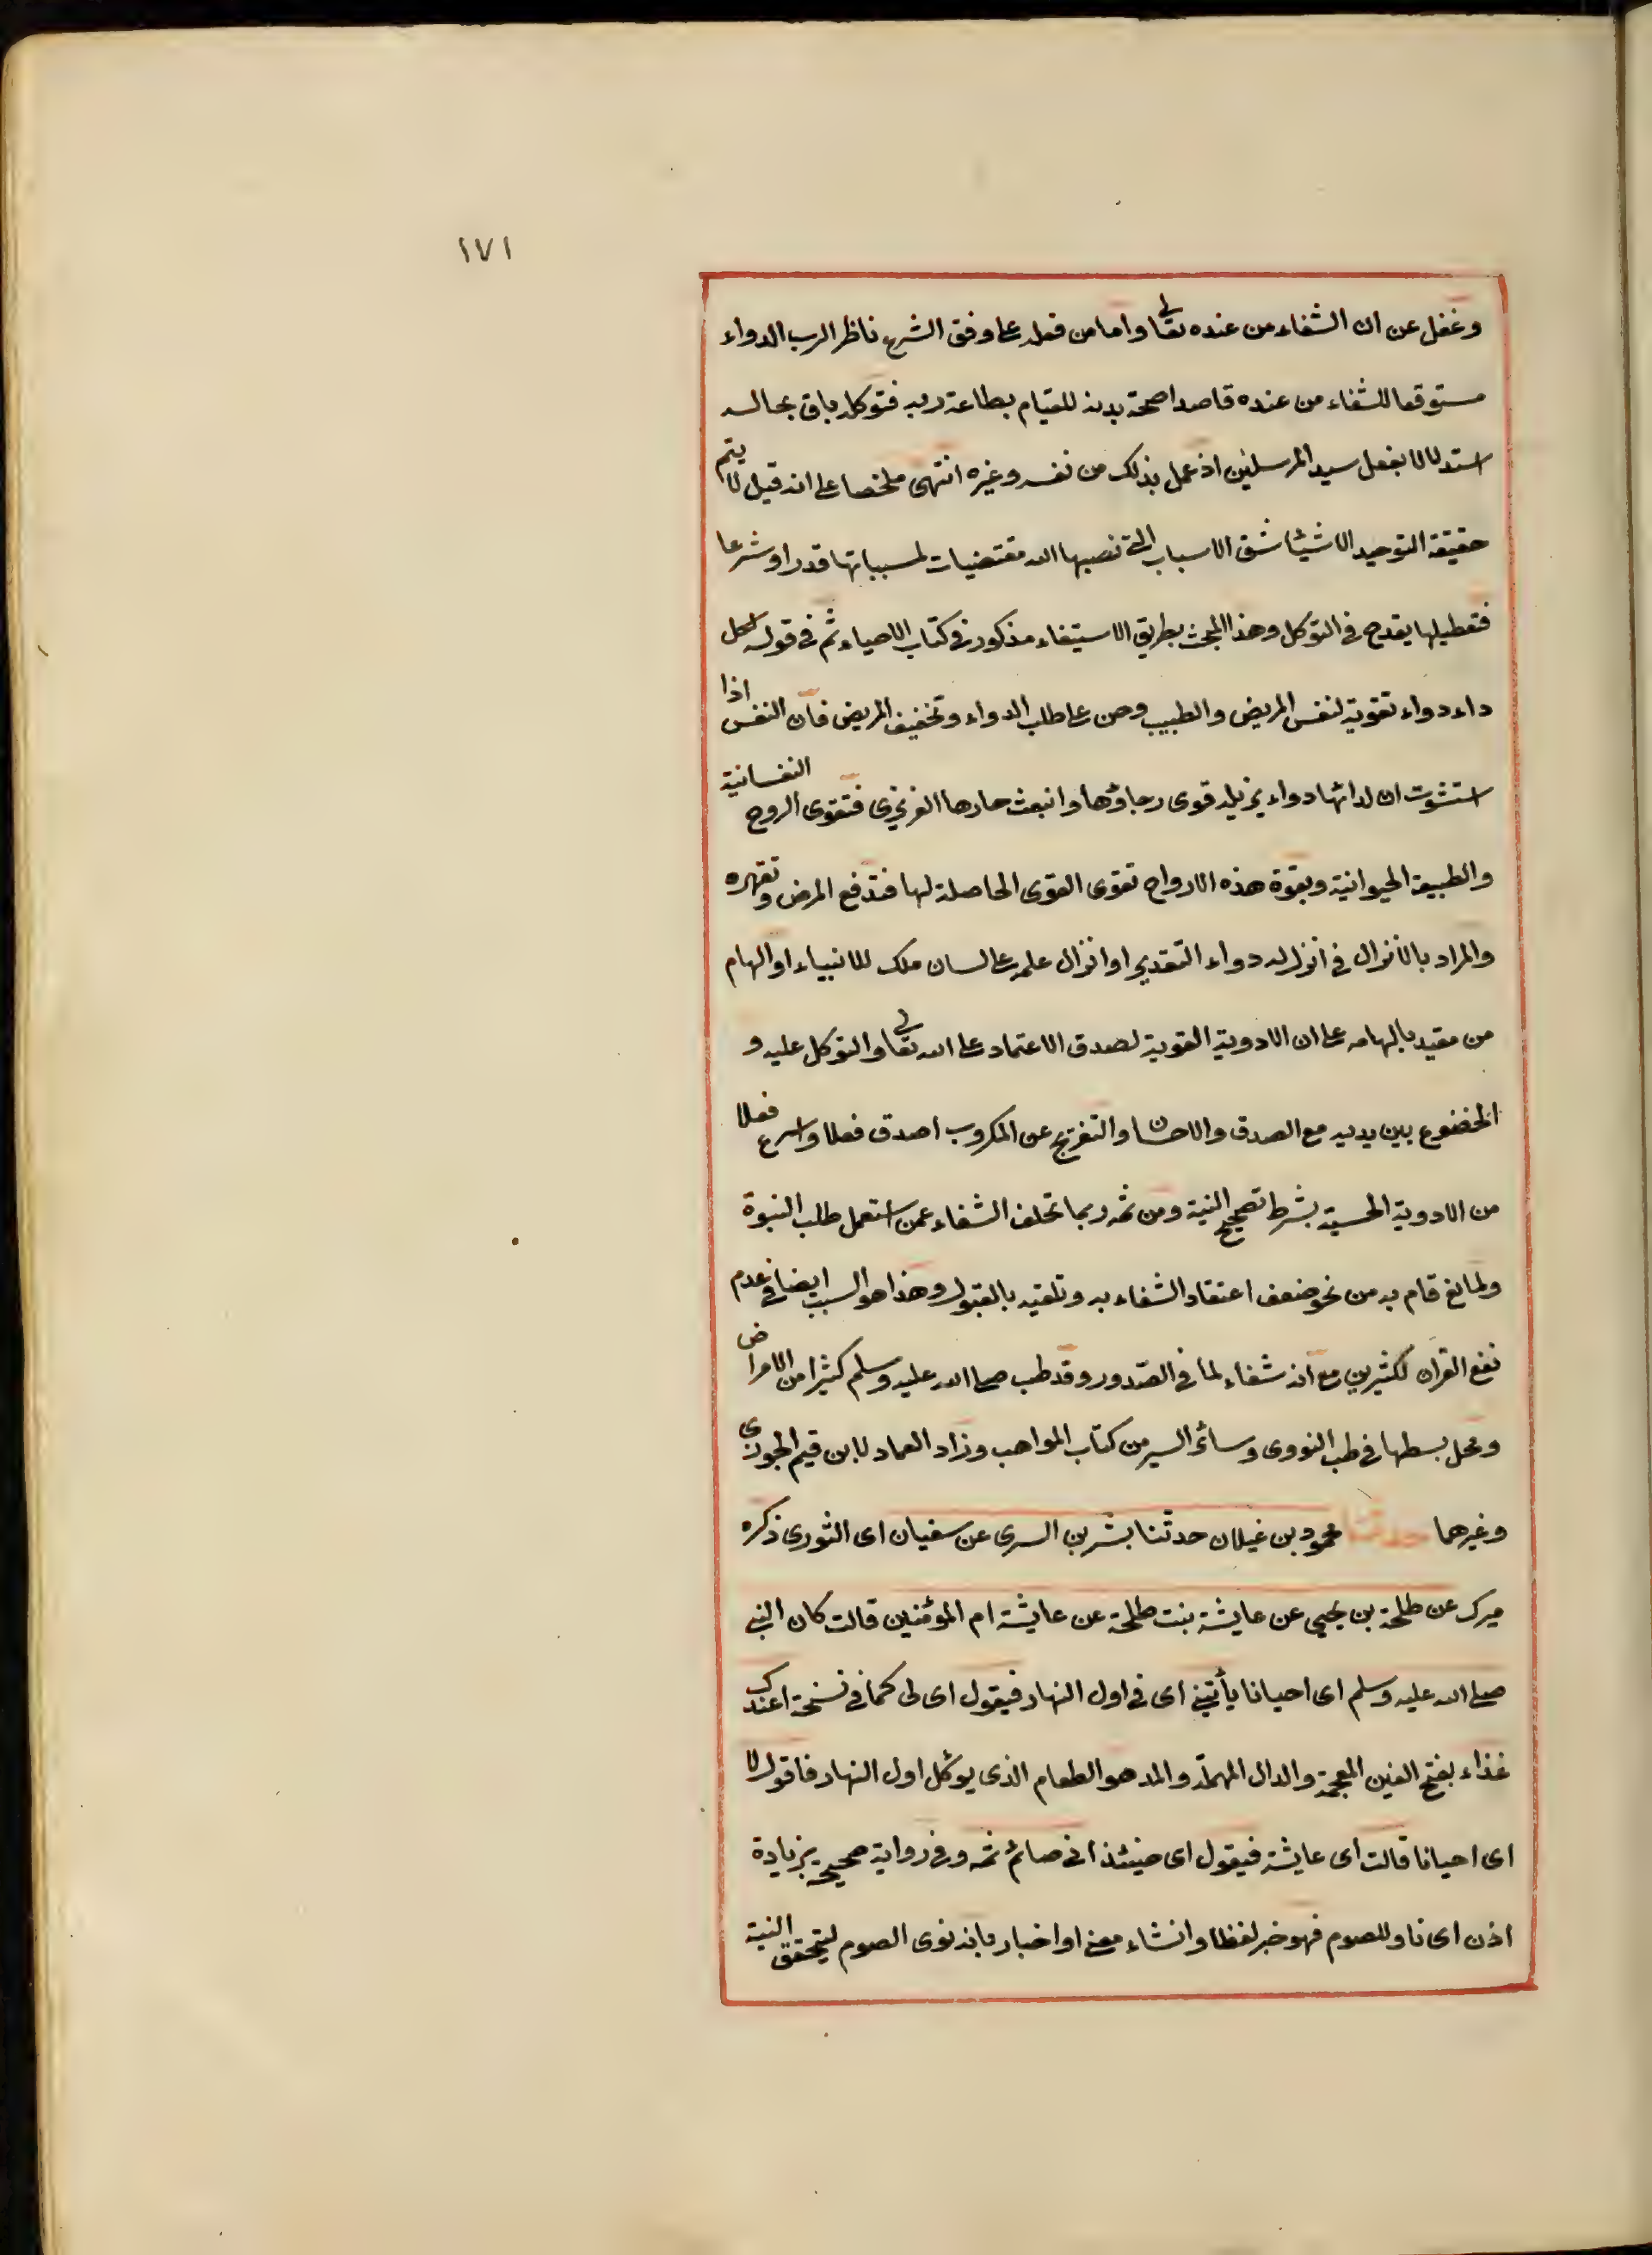 ١٧١
وغفل عن ان الشفاء من عنده تعالى واما من فعله على وفق الشرع ناظر الرب الدواء
متوقعا للشفاء من عنده قاصدا صحة بدنه للقيام بطاعة ربه فتوكله باق بحاله
استدلالا بفعل سيد المرسلين اذ عمل بذلك من نفسه وغيره انتهى ملخصا على انه قيل لا يتم
حقيقة التوحيد الا شيئا شق الاسباب التى نصبها الله مقتضيات لمسبباتها قدرا وشرعا
فتعطيلها يقدح فى التوكل وهذا المبحث بطريق الاستيفاء مذكور فى كتاب الاحياء ثم فى قوله لكل
داء دواء تقوية لنفس المريض والطبيب وحث على طلب الدواء وتخفيف المريض فان النفس اذا
استشوت ان لدائها دواء يزيله قوى رجاؤها وانبعث حارها الغريزى فتقوى الروح النفسانية
والطبيعة الحيوانية وبقوة هذه الارواح تقوى القوى الحاصلة لها فتدفع المرض وتقهره
والمراد بالانزال فى انزل له دواء التقدير او انزال علمه على لسان ملك للانبياء او الهام
من مقيد بالهامه على ان الادوية القوية لصدق الاعتماد على الله تعالى والتوكل عليه و
الخضوع بين يديه مع الصدق والاحسان والتفريج عن المكروب اصدق فعلا واسرع فعلا
من الادوية الحسية بشرط تصحيح النية ومن ثمه ربما تخلف الشفاء عمن استعمل طلب النبوة
ولمانع قام به من نحو ضعف اعتقاد الشفاء به وتلقيه بالقبول وهذا هو السبب ايضا فى عدم
نفع القران لكثيرين مع انه شفاء لما فى الصدور وقد طب صلى الله عليه وسلم كثيرا من الامراض
ومحل بسطها فى طب النووى وسائر السير من كتاب المواهب وزاد العماد لابن قيم الجوزى
وغيرهما حدثنا محمود بن غيلان حدثنا بشر بن السرى عن سفيان اى الثورى ذكره
ميرك عن طلحة بن يحيى عن عايشة بنت طلحة عن عايشة ام المؤمنين قالت كان النبى
صلى الله عليه وسلم اى احيانا يأتينى اى فى اول النهار فيقول اى لى كما فى نسخة اعندك
غذاء بفتح الغين المعجمة والدال المهملة والمد هو الطعام الذى يوكل اول النهار فاقول لا
اى احيانا قالت اى عايشة فيقول اى حينئذ انى صائم ثمه وفى رواية صحيحة بزيادة
اذن اى ناو للصوم فهو خبر لفظا وانشاء معنى او اخبار بانه نوى الصوم ليتحقق النية